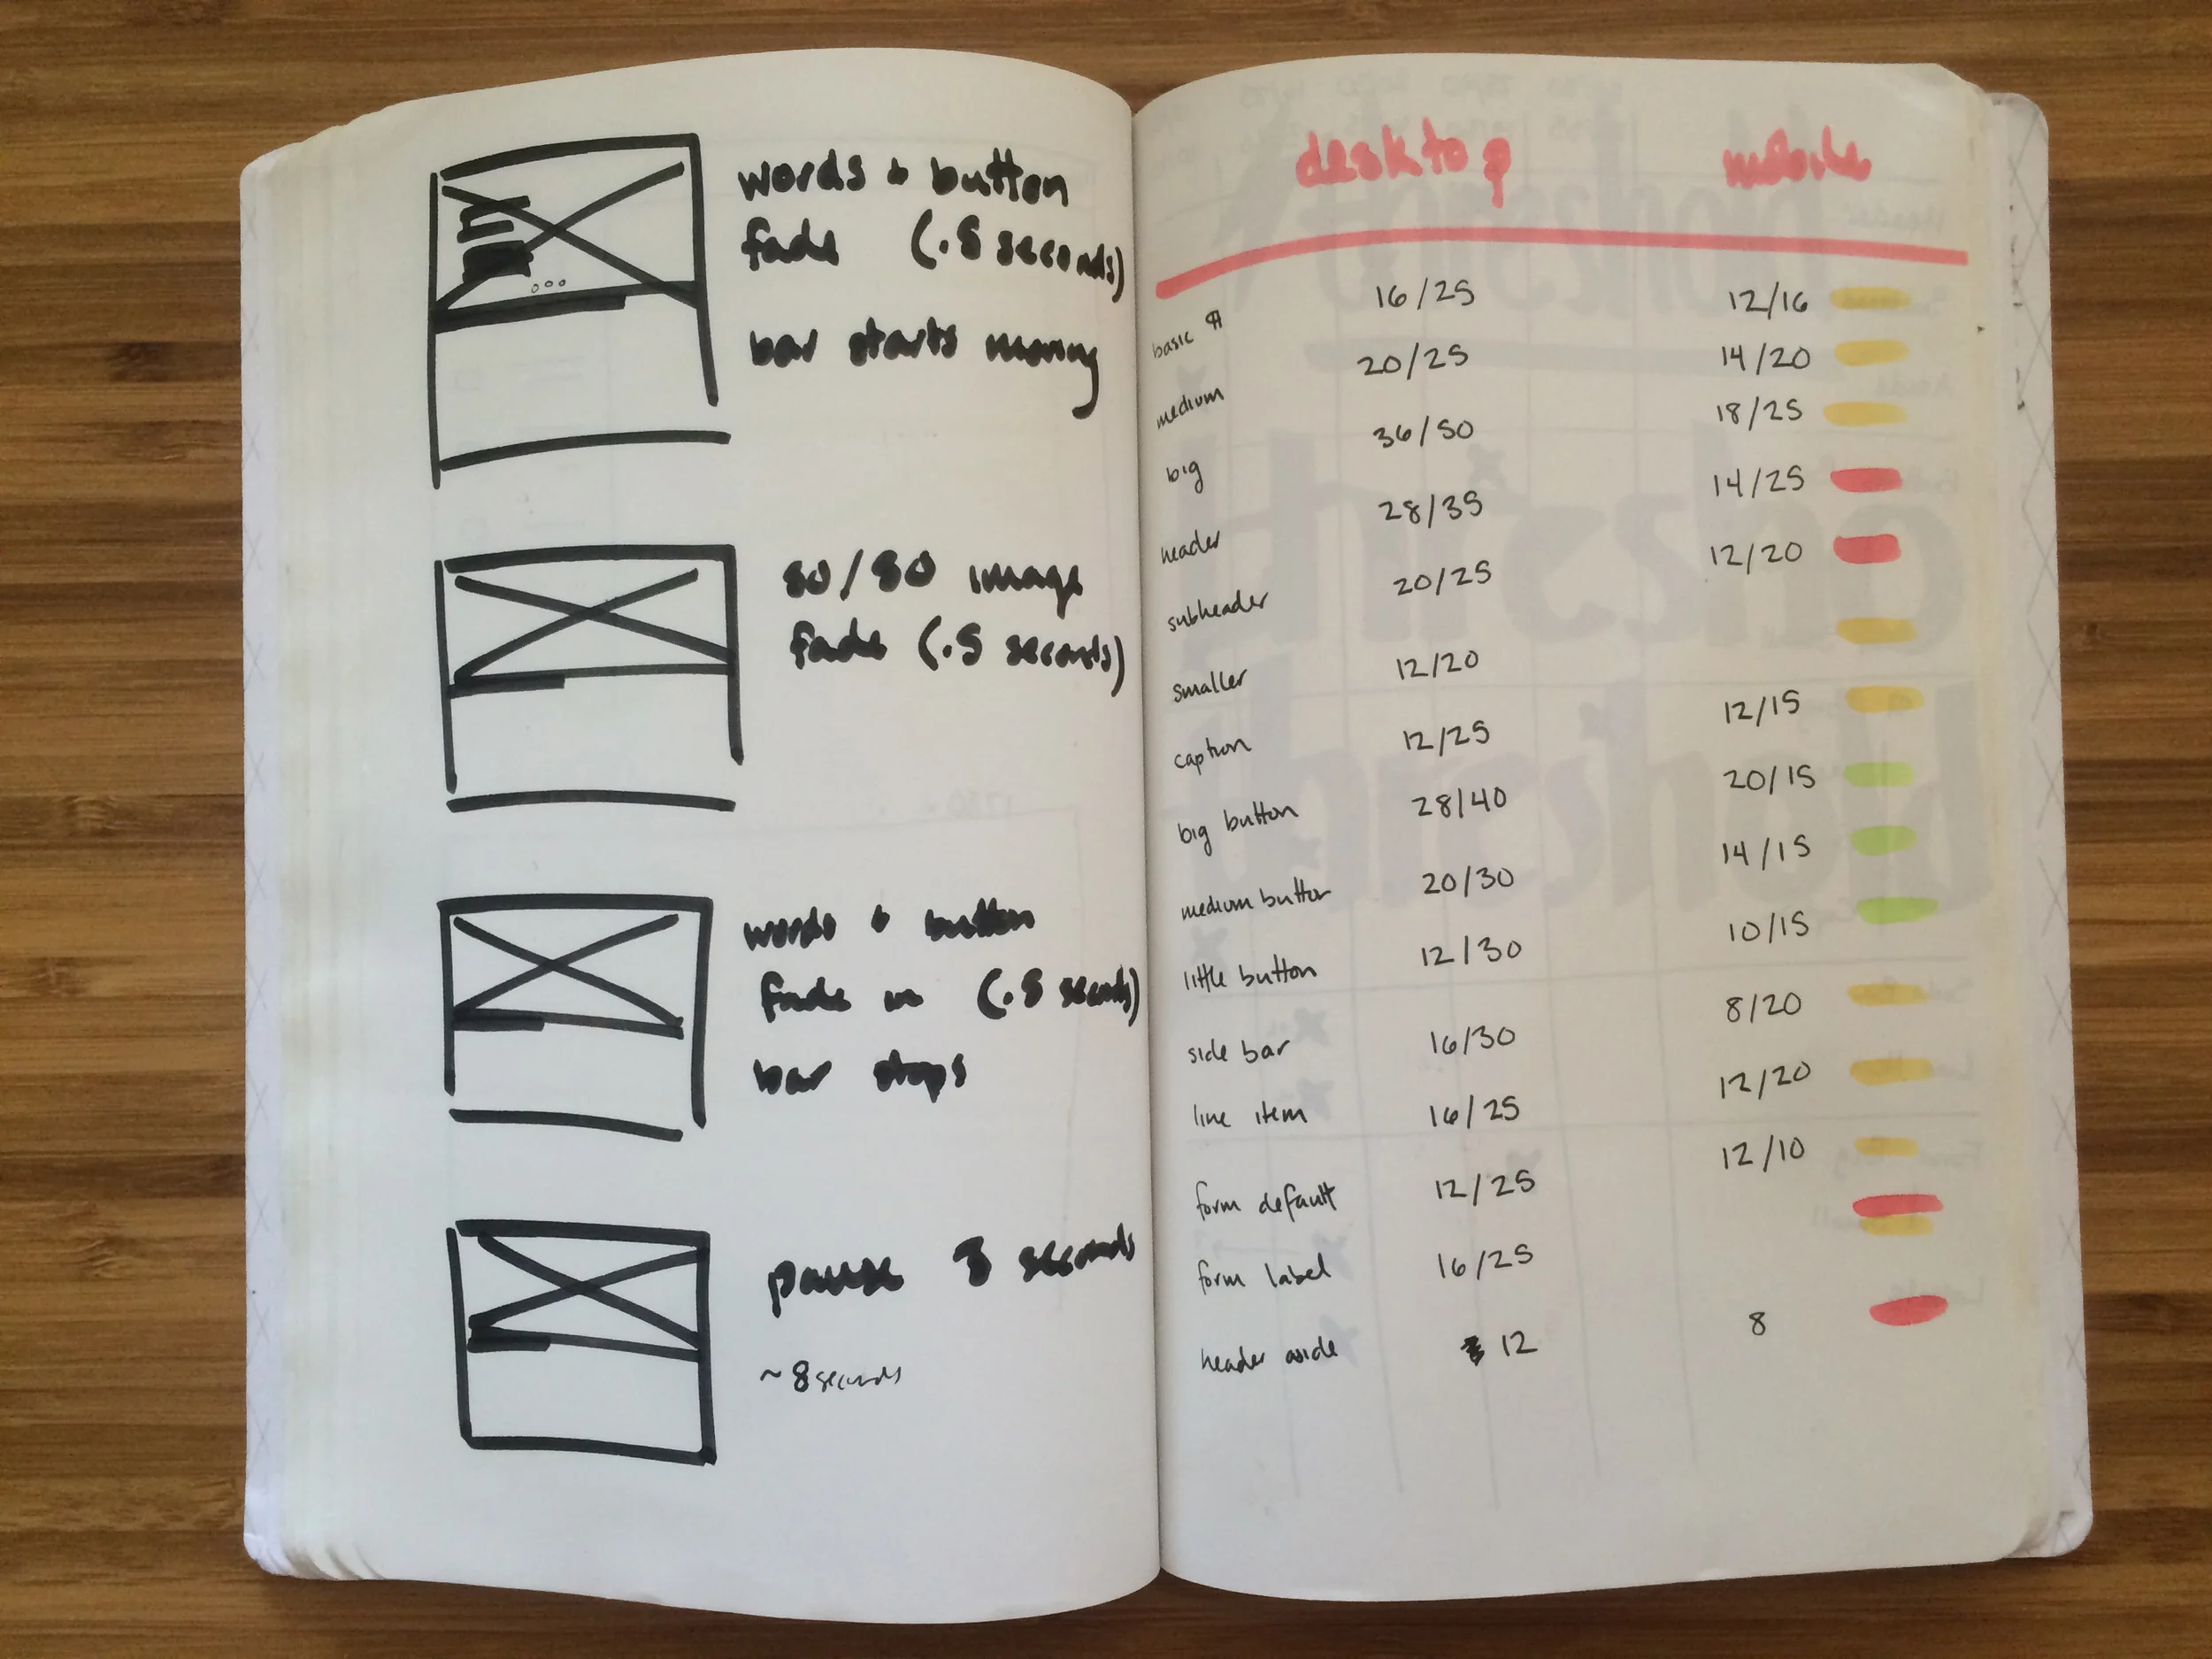 words + button
fade (.5 seconds)
bar starts moving
50/50 image
fade (.5 seconds)
words + button
fade in (.5 seconds)
bar stops
pause 3 seconds
~8 seconds
desktop mobile
basic ¶ 16/25 12/16
medium 20/25 14/20
big 36/50 18/25
header 28/35 14/25
subheader 20/25 12/20
smaller 12/20
caption 12/25 12/15
big button 28/40 20/15
medium button 20/30 14/15
little button 12/30 10/15
side bar 16/30 8/20
line item 16/25 12/20
form default 12/25 12/10
form label 16/25
header aside 12 8